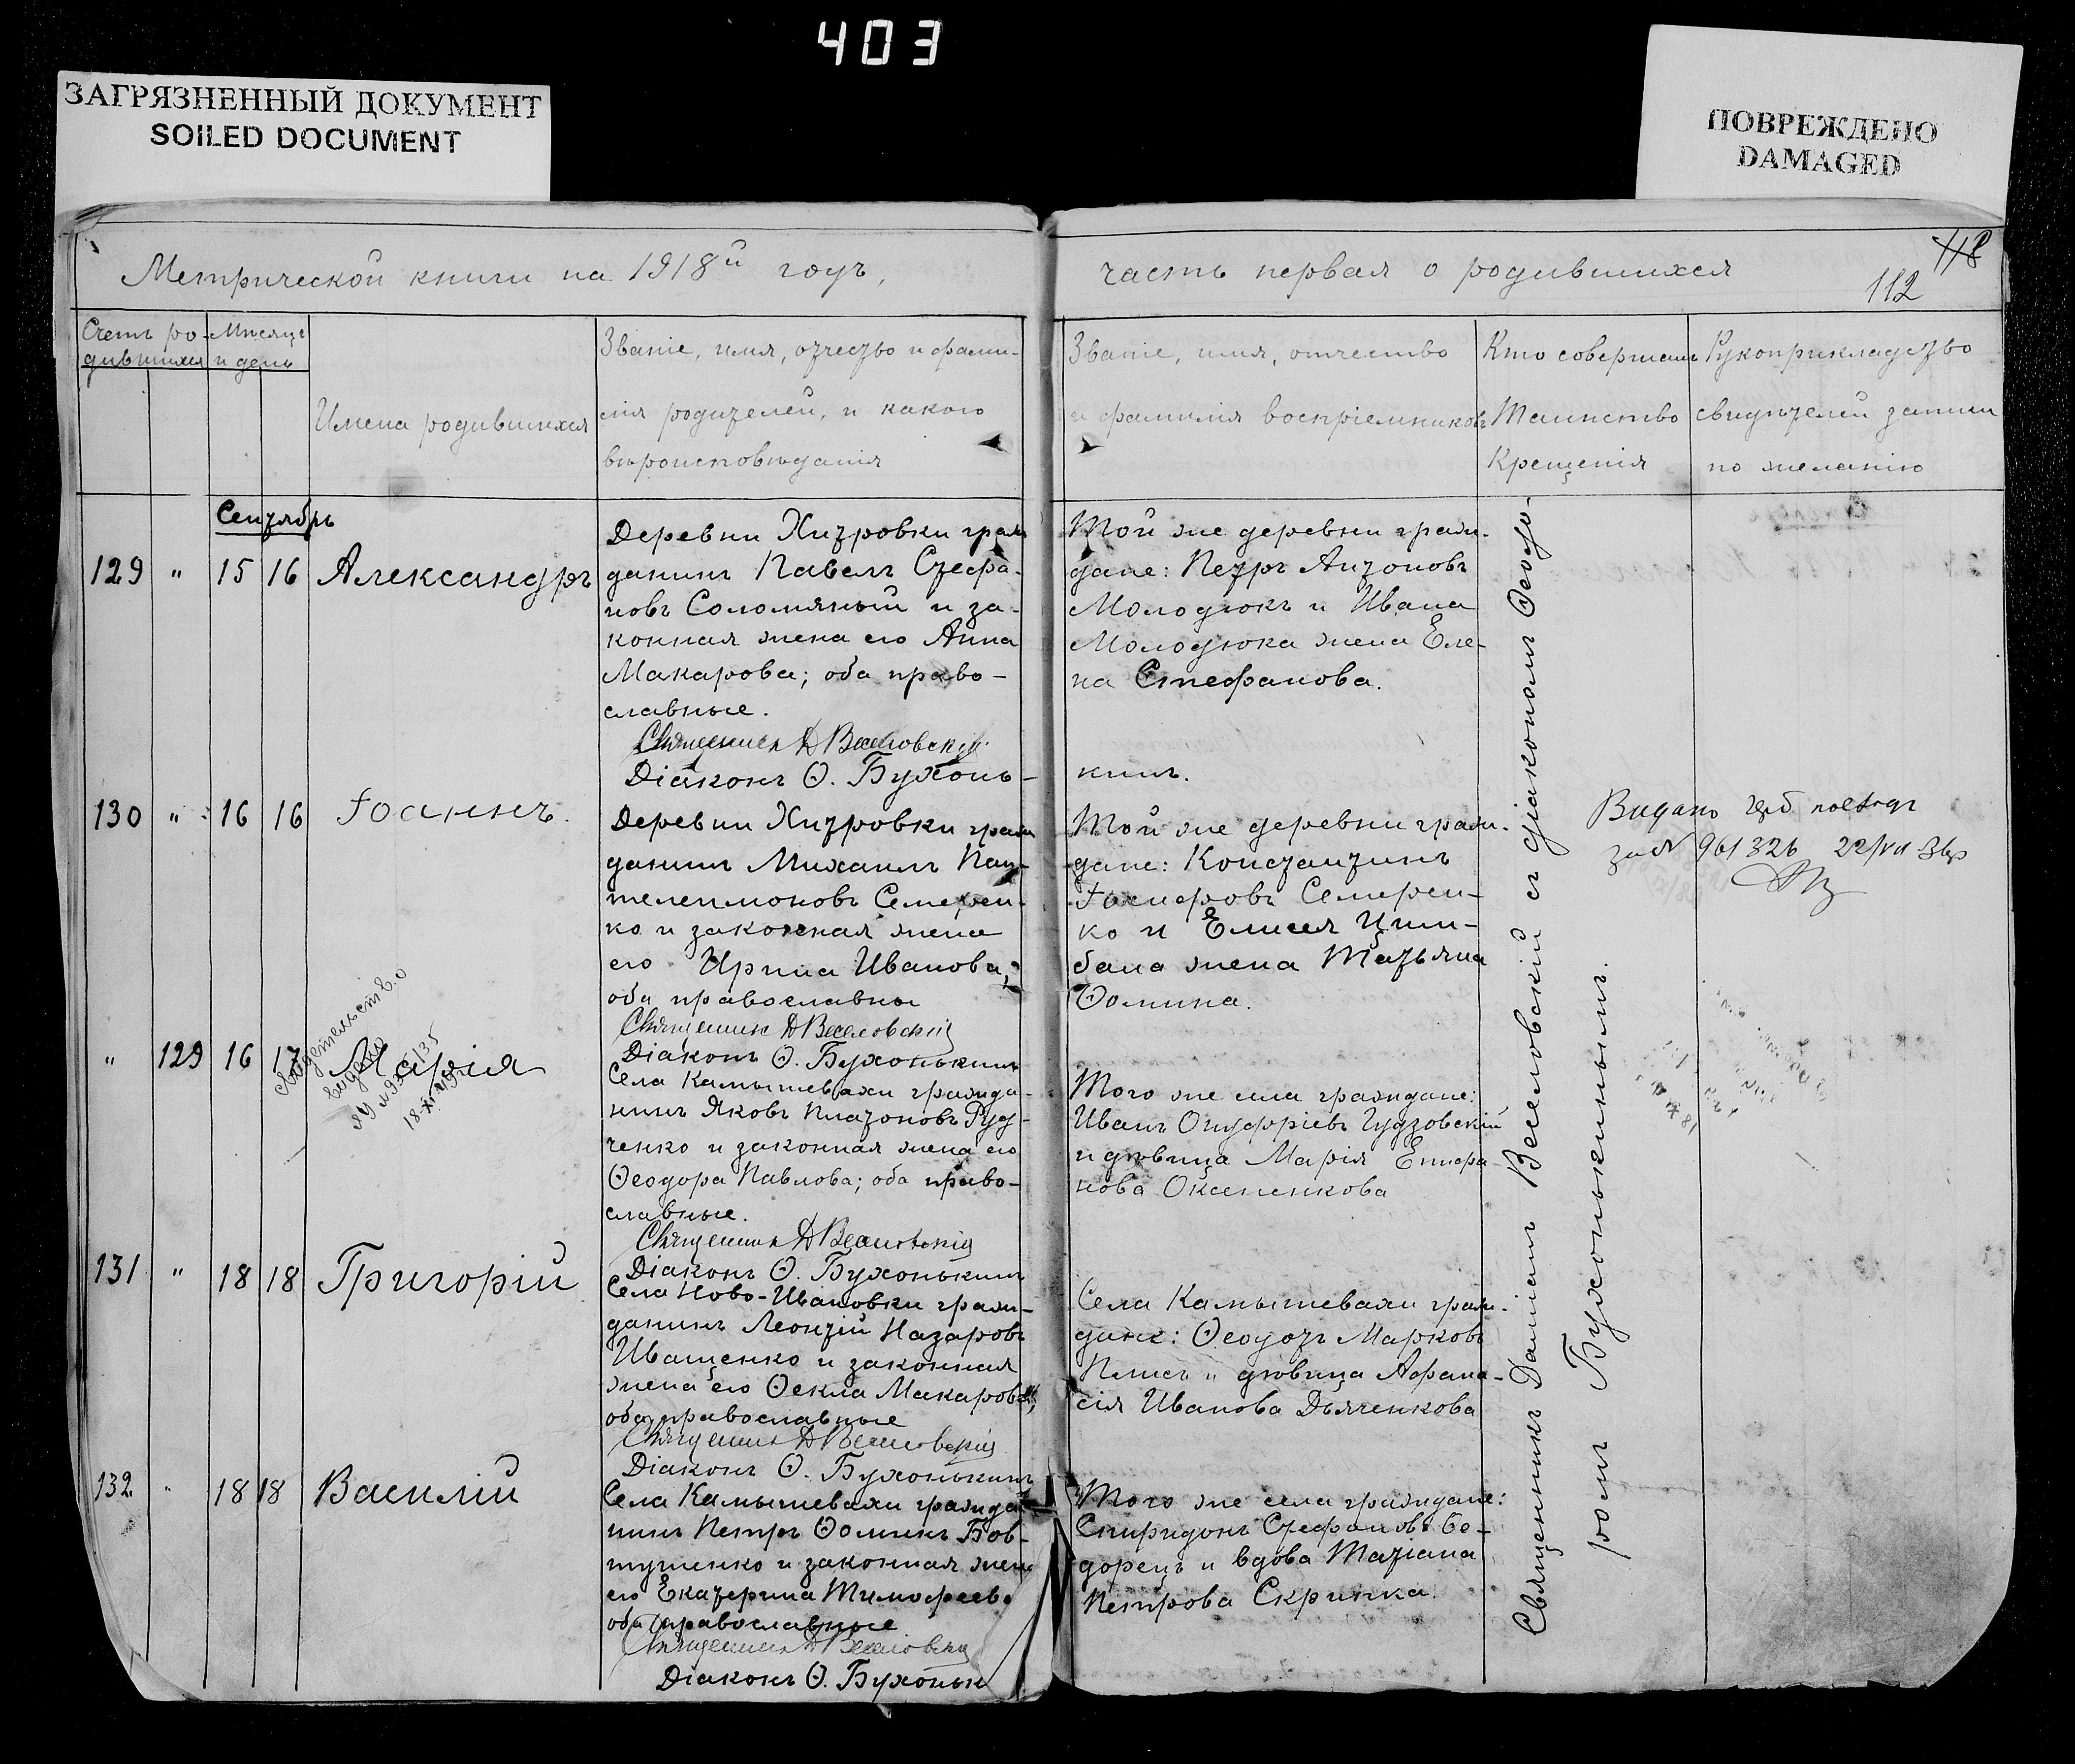 403
ЗАГРЯЗНЕННЫЙ ДОКУМЕНТ
SOILED DOCUMENT
ПОВРЕЖДЕНО
DAMAGED
Метрической книги на 1918й годъ,
часть первая о родившихся
118
112
Счетъ ро-
дившихся
Мѣсяцъ
и день
Имена родившихся
Званіе, имя, отчество и фами-
лія родителей, и какого
вѣроисповѣданія
Званіе, имя, отчество
и фамилія воспріемниковъ
Кто совершалъ
Таинство
Крещенія
Рукоприкладство
свидѣтелей записи
по желанію
Сентябрь
129 " 15 16 Александръ
Деревни Хитровки граж
данинъ Павелъ Стефа-
новъ Соломяный и за-
конная жена его Анна
Макарова; оба право-
славные.
Священникъ Д Веселовскій
Діаконъ Ѳ. Бухонь-
Той же деревни граж-
дане: Петръ Антоновъ
Молодюкъ и Ивана
Молодюка жена Еле-
на Стефанова.
кинъ.
130 " 16 16 Іоаннъ.
Деревни Хитровки граж
данинъ Михаилъ Пан-
телеимоновъ Семерен-
ко и законная жена
его Ирина Иванова;
оба православны
Священникъ Д Веселовскій
Діаконъ Ѳ. Бухонькинъ
Той же деревни граж-
дане: Константинъ
Семерен-
ко и Елисея Цим-
бала жена Татьяна
Ѳомина.
Видано
961326 22/VII
" 129 16 17 Марія
Свидетельство
выдано
Села Камышевахи гражда-
нинъ Яковъ Платоновъ Руд-
ченко и законная жена его
Ѳеодора Павлова; оба право-
славные.
Священникъ Д Веселовскій
Діаконъ Ѳ. Бухонькинъ
Того же села граждане:
Иванъ Онуфріевъ Гудзовскій
и дѣвица Марія
нова Оксененкова
131 " 18 18 Григорій
Села Ново-Ивановки граж-
данинъ Леонтій Назаровъ
Иващенко и законная
жена его Ѳекла Макарова;
оба православные
Священникъ Д Веселовскій
Діаконъ Ѳ. Бухонькинъ
Села Камышевахи граж-
дане: Ѳеодотъ Марковъ
и дѣвица Афана-
сія Иванова Дьяченкова
132 " 18 18 Василій
Села Камышевахи гражда
нинъ Петръ Ѳоминъ Бов-
тушенко и законная жена
его Екатерина Тимофеева
оба православные
Священникъ Д Веселовскій
Діаконъ Ѳ. Бухоньк
Того же села граждане:
Спиридонъ Стефановъ Ѳе-
дорецъ и вдова Татіана
Петрова Скрипка.
Священникъ Даніилъ Веселовскій съ діакономъ Ѳеодо-
ромъ Бухонькинымъ.